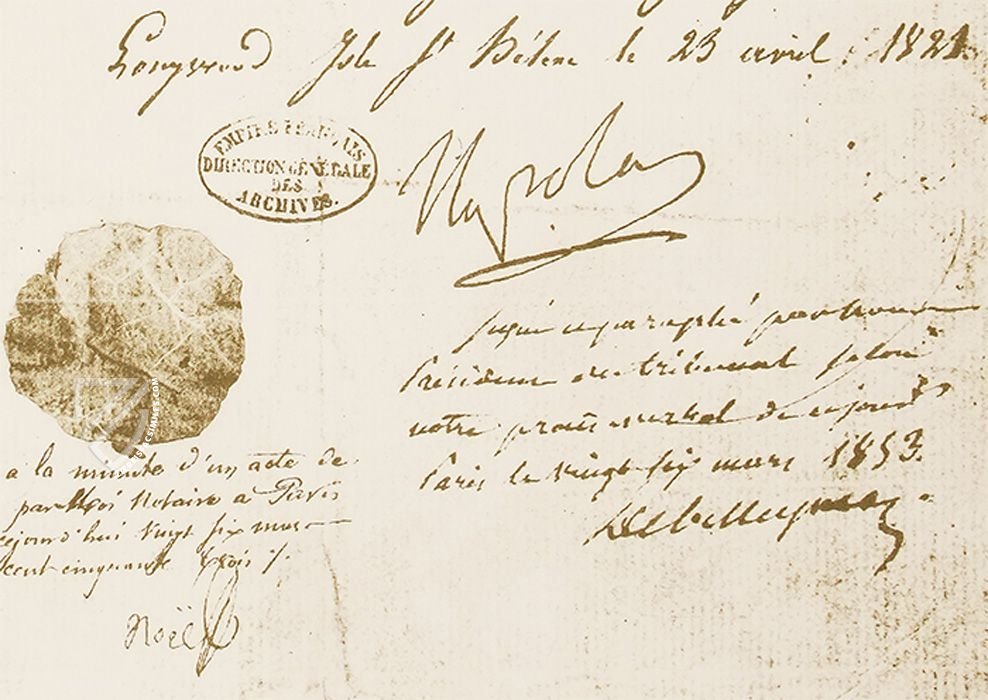 Longwood Isle St Hélène le 23 avril 1821.
EMPIRE FRANÇAIS
DIRECTION GÉNÉRALE
DES
ARCHIVES.
Napoléon
signé et paraphé par nous
Président du tribunal selon
notre procès verbal de ce jour
Paris le vingt six mars 1853.
Debelleyme
a la minute d'un acte de
par Moi Notaire a Paris
cejourd'hui vingt six mars
cent cinquante trois /.
Noël